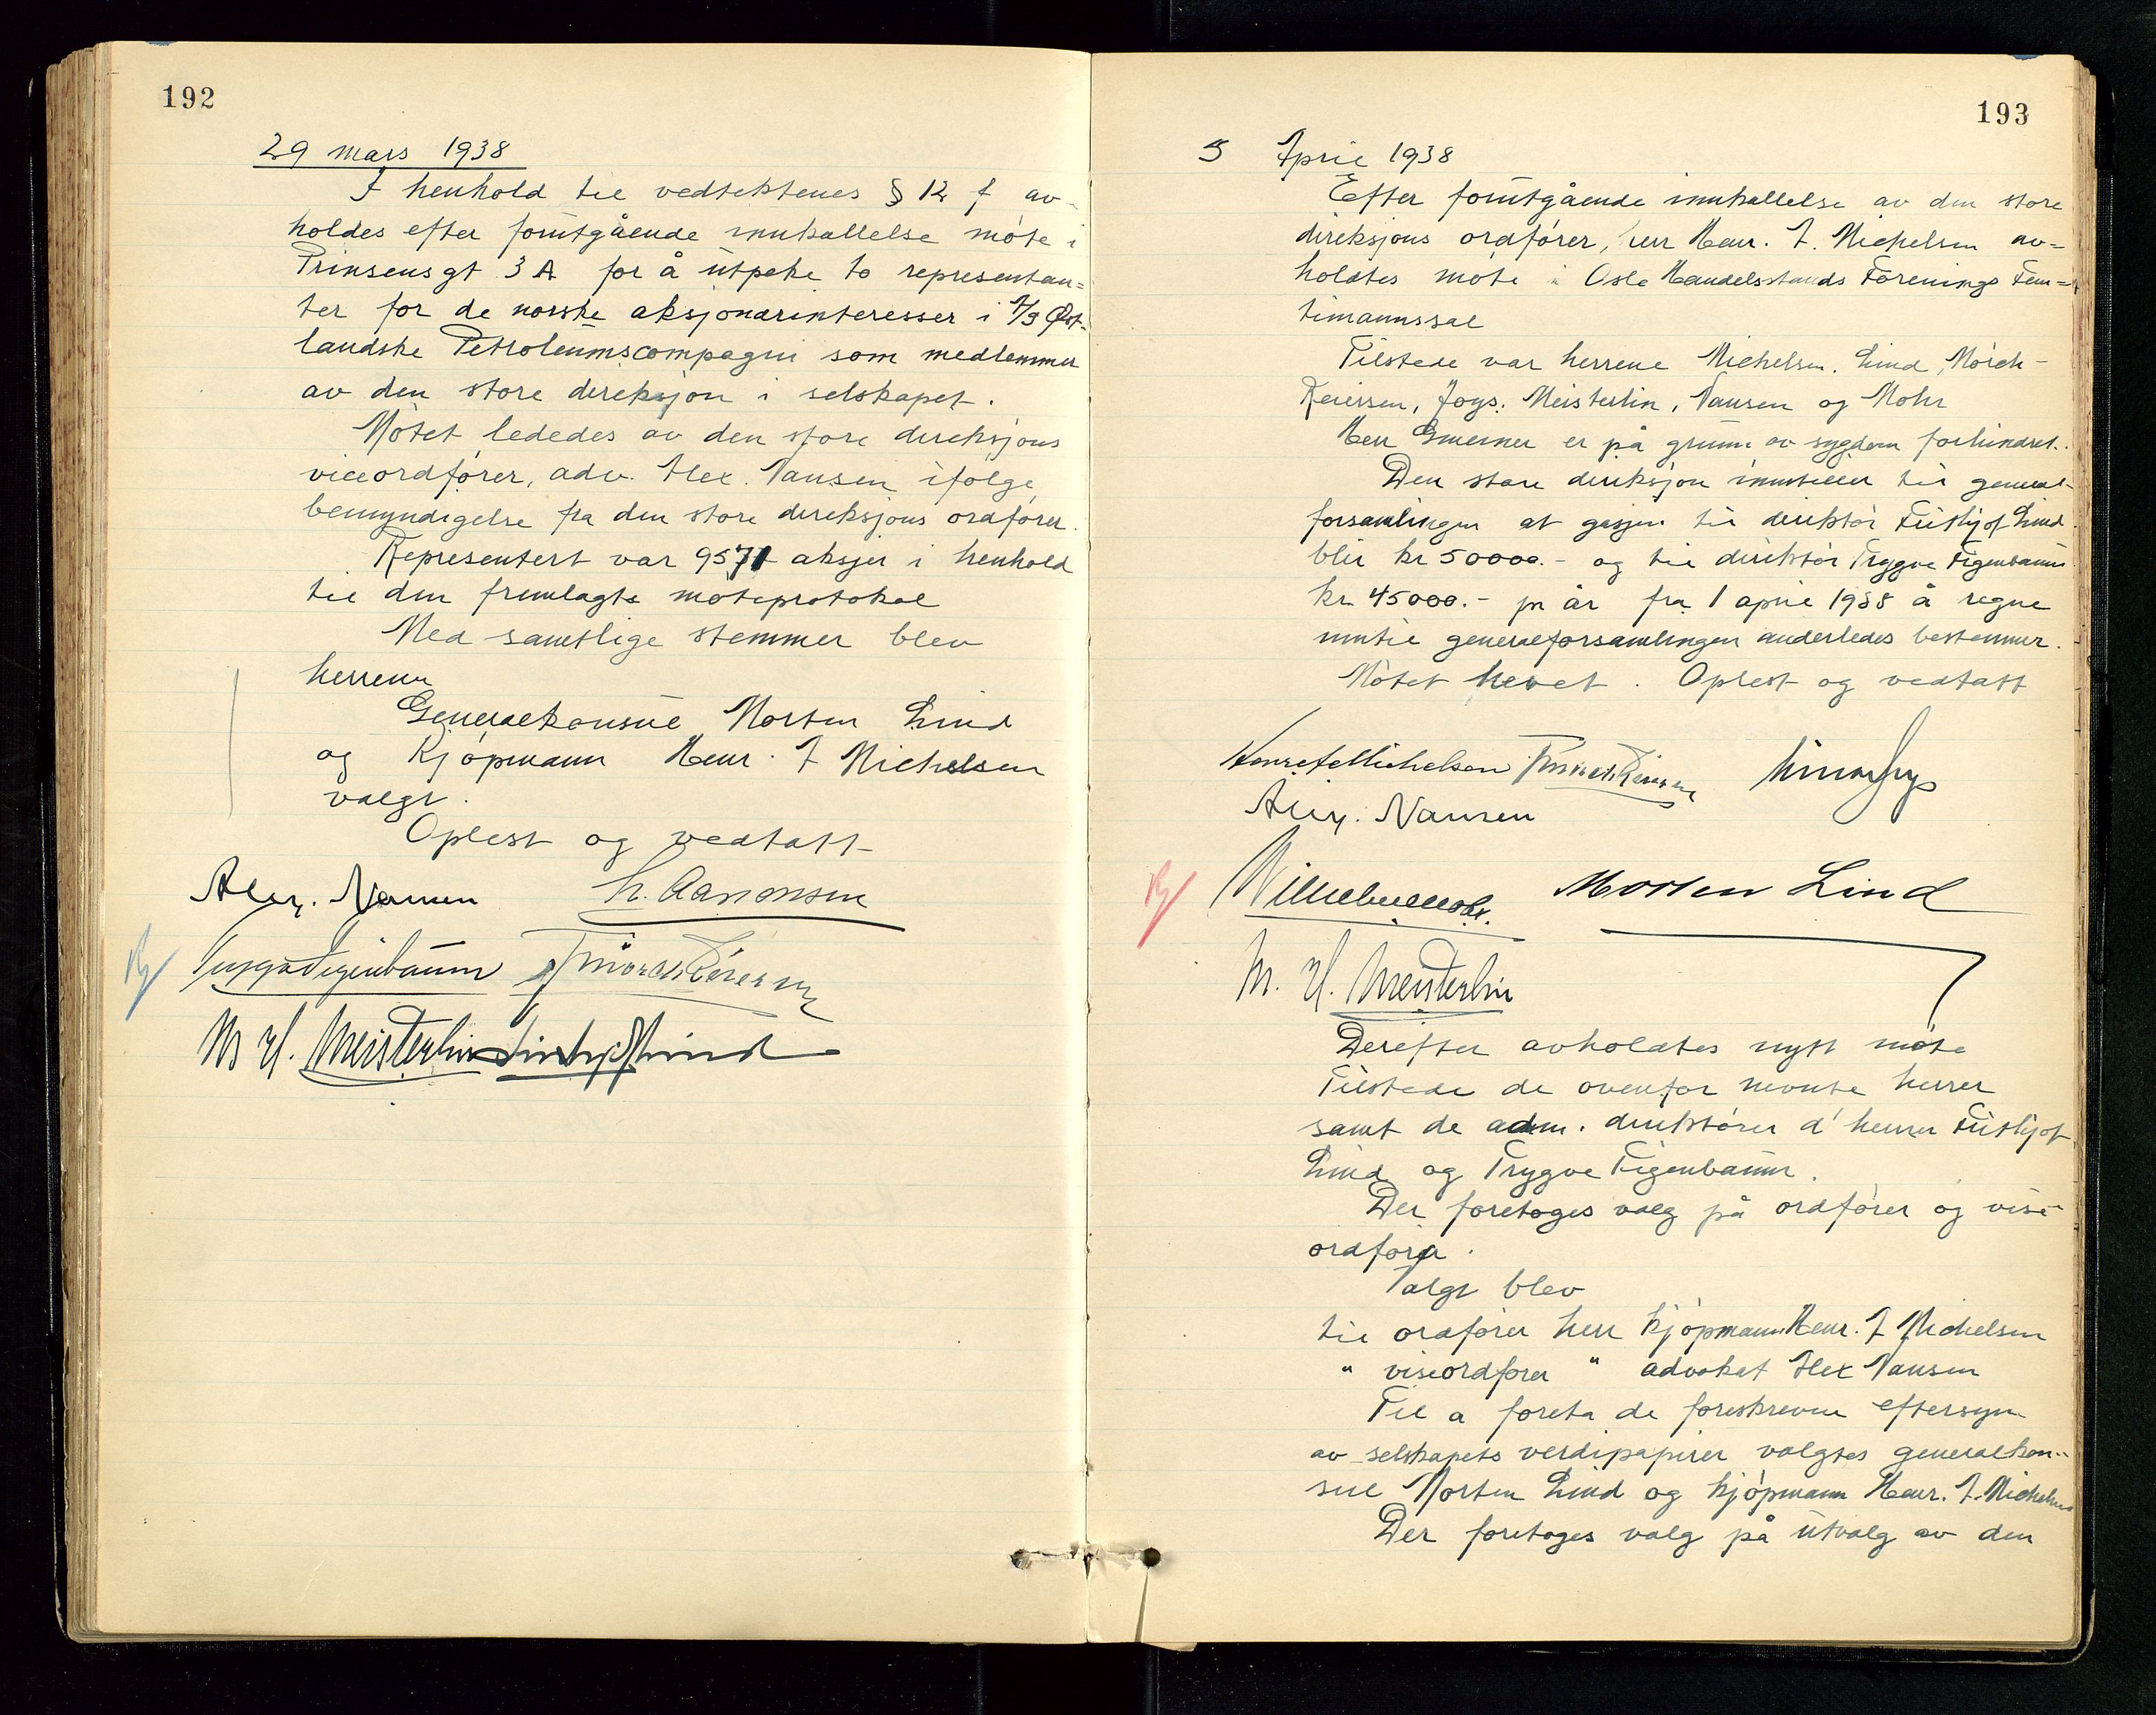 192
29 mars 1938
I henhold til vedtektenes § 12 f av-
holdes efter forutgående innkallelse møte i
Prinsensgt 3 A for å utpeke to representan=
ter for de norske aksjonærinteresser i A/S Øst-
landske Petroleumscompagni som medlemmer
av den store direksjon i selskapet.
Møtet lededes av den store direksjons
viceordfører, adv. Alex. Nansen ifølge
bemyndigelse fra den store direksjons ordfører.
Representert var 9571 aksjer i henhold
til den fremlagte møteprotokol
Med samtlige stemmer blev
herrene
Generalkonsul Morten Lind
og Kjøpmann Henr. J Michelsen
valgt.
Oplest og vedtatt
Alex. Nansen H. Aanonsen
Trygve Figenbaum Mørch Reiersen
M H. Meisterlin Fritjof Lind
193
5 April 1938
Efter forutgående innkallelse av den store
direksjons ordfører, herr Henr. J. Michelsen av=
holdtes møte i Oslo Handelsstands Forenings Fem=
timannssal
Tilstede var herrene Michelsen. Lind, Mørch-
Reiersen, Joys. Meisterlin, Nansen og Mohr
Herr er på grunn av sygdom forhindret.
Den store direksjon innstiller til general-
forsamlingen at gasjen til direktør Fritjof Lind
blir kr 50000.- og til direktør Trygve Figenbaum
kr. 45000.- pr år fra 1 april 1938 å regne
inntil generalforsamlingen anderledes bestemmer.
Møtet hevet. Oplest og vedtatt
Henr J Michelsen Mørch Reiersen Einar Joys
Alex. Nansen
Wilhelm Mohr. Morten Lind
M. H. Meisterlin
Derefter avholdtes nytt møte
Tilstede de ovenfor nevnte herrer
samt de adm. direktører d' herrer Fritjof
Lind og Trygve Figenbaum.
Der foretoges valg på ordfører og vise-
ordfører.
Valgt blev
til ordfører herr kjøpmann Henr. J Michelsen
" viseordfører " advokat Alex Nansen
Til a foreta de foreskrevne eftersyn
av selskapets verdipapirer valgtes generalkon-
sul Morten Lind og kjøpmann Henr. J. Michelsen
Der foretoges valg på utvalg av den